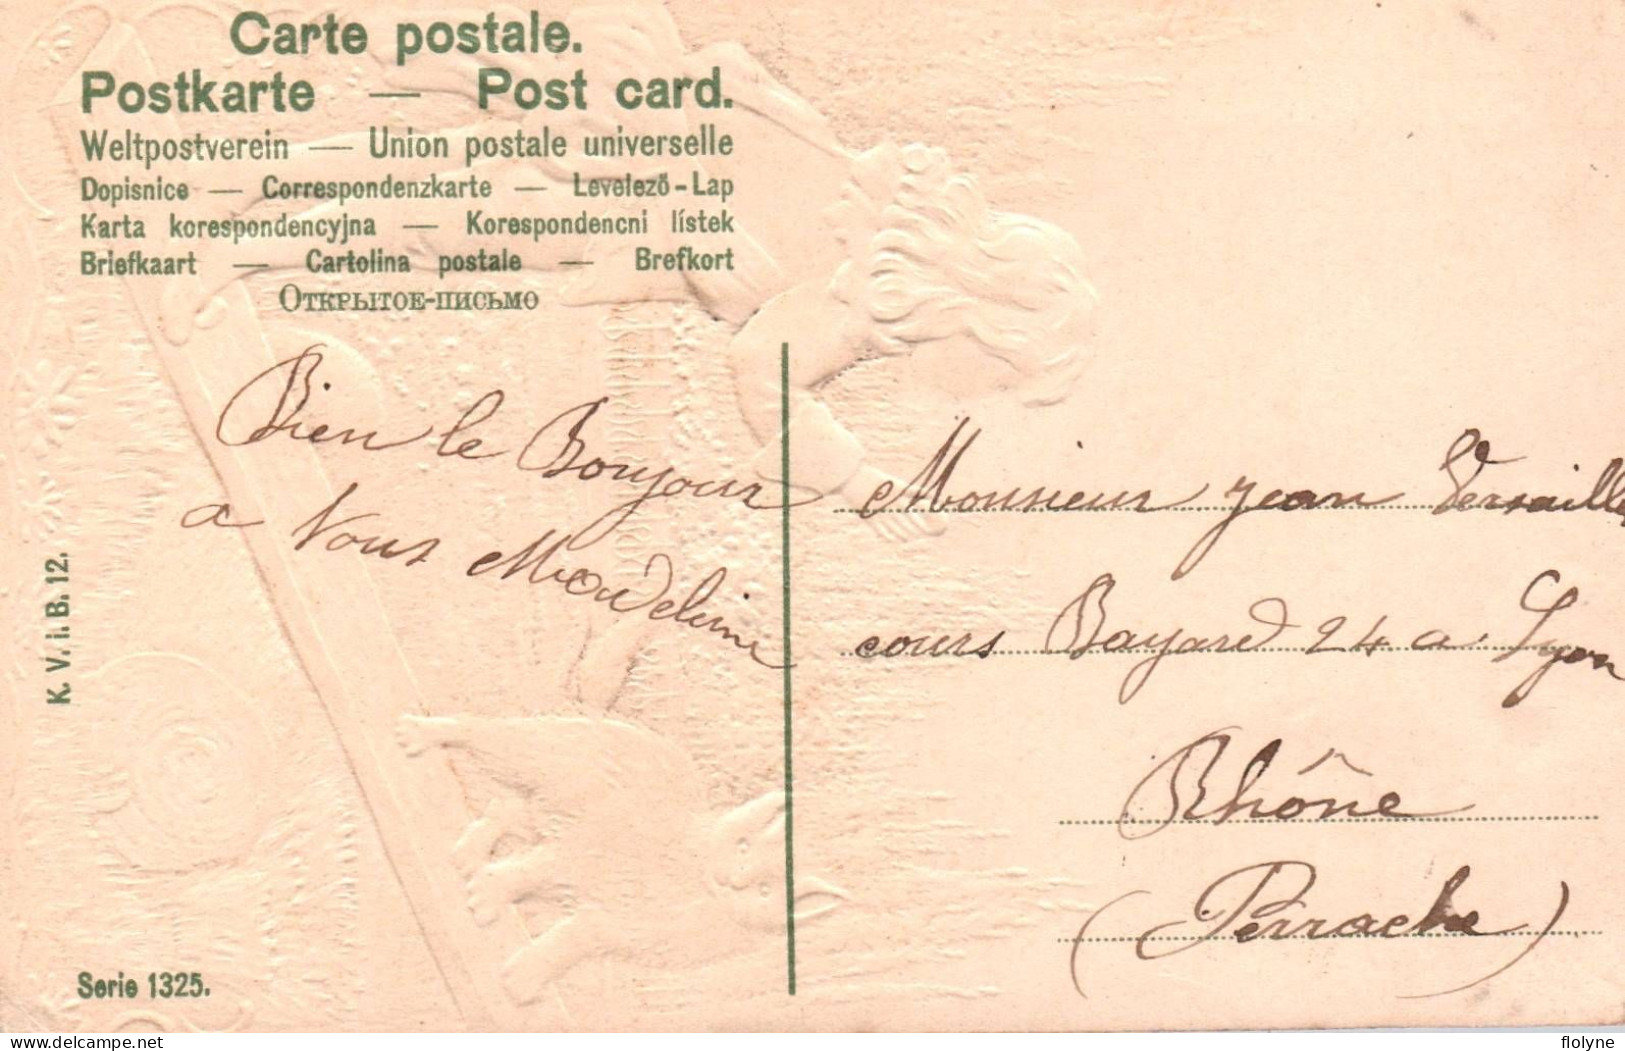 Carte postale.
Postkarte — Post card.
Weltpostverein — Union postale universelle
Dopisnice — Correspondenzkarte — Levelező-Lap
Karta korespondencyjna — Korespondencni lístek
Briefkaart — Cartolina postale — Brefkort
Открытое-письмо
Bien le Bonjour
a Vous Madeleine
K. V. i. B. 12.
Serie 1325.
Monsieur Jean Versaille
cours Bayard 24 a Lyon
Rhône
(Perrache)
delcampe.net
flolyne